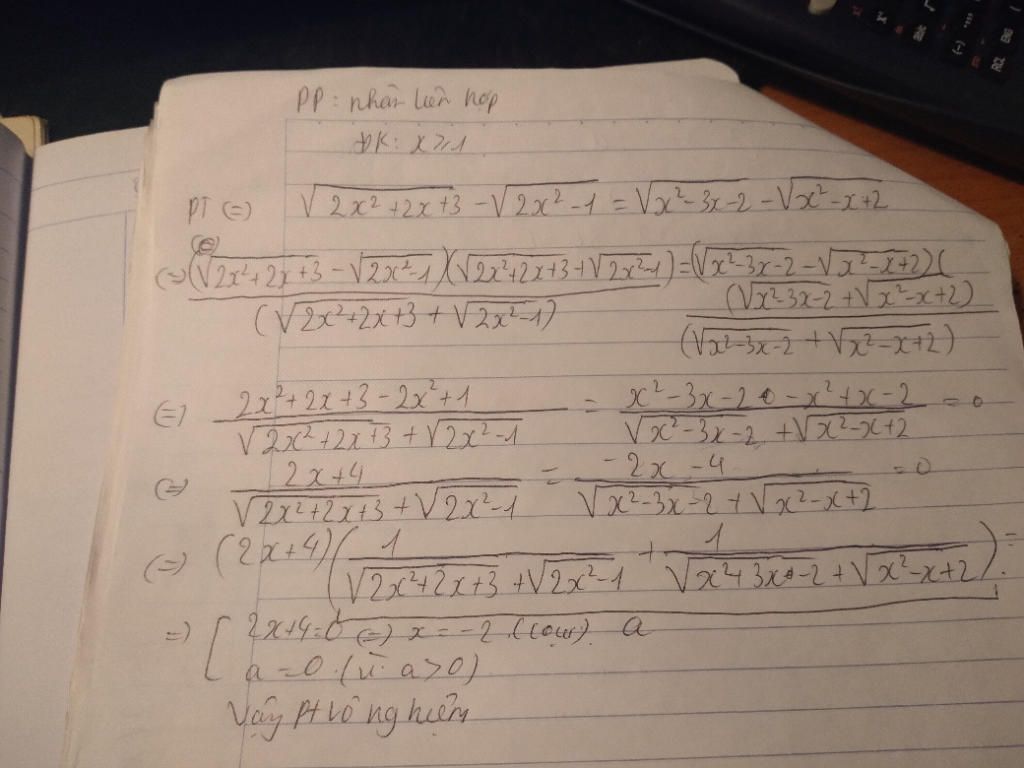 PP: nhân liên hợp
ĐK: x ≥ 1
PT (=) √(2x²+2x+3) - √(2x²-1) = √(x²-3x-2) - √(x²-x+2)
(=) (√(2x²+2x+3) - √(2x²-1))(√(2x²+2x+3) + √(2x²-1)) / (√(2x²+2x+3) + √(2x²-1)) = (√(x²-3x-2) - √(x²-x+2))((√(x²-3x-2) + √(x²-x+2)) / (√(x²-3x-2) + √(x²-x+2))
(=) (2x²+2x+3-2x²+1) / (√(2x²+2x+3) + √(2x²-1)) = (x²-3x-2-x²+x-2) / (√(x²-3x-2) + √(x²-x+2)) = 0
(=) (2x+4) / (√(2x²+2x+3) + √(2x²-1)) = (-2x-4) / (√(x²-3x-2) + √(x²-x+2)) = 0
(=) (2x+4)(1 / (√(2x²+2x+3) + √(2x²-1)) + 1 / (√(x²+3x-2) + √(x²-x+2))) =
=) [ 2x+4=0 (=) x=-2 (loại) a
a=0 (vì a>0)
Vậy Pt vô nghiệm